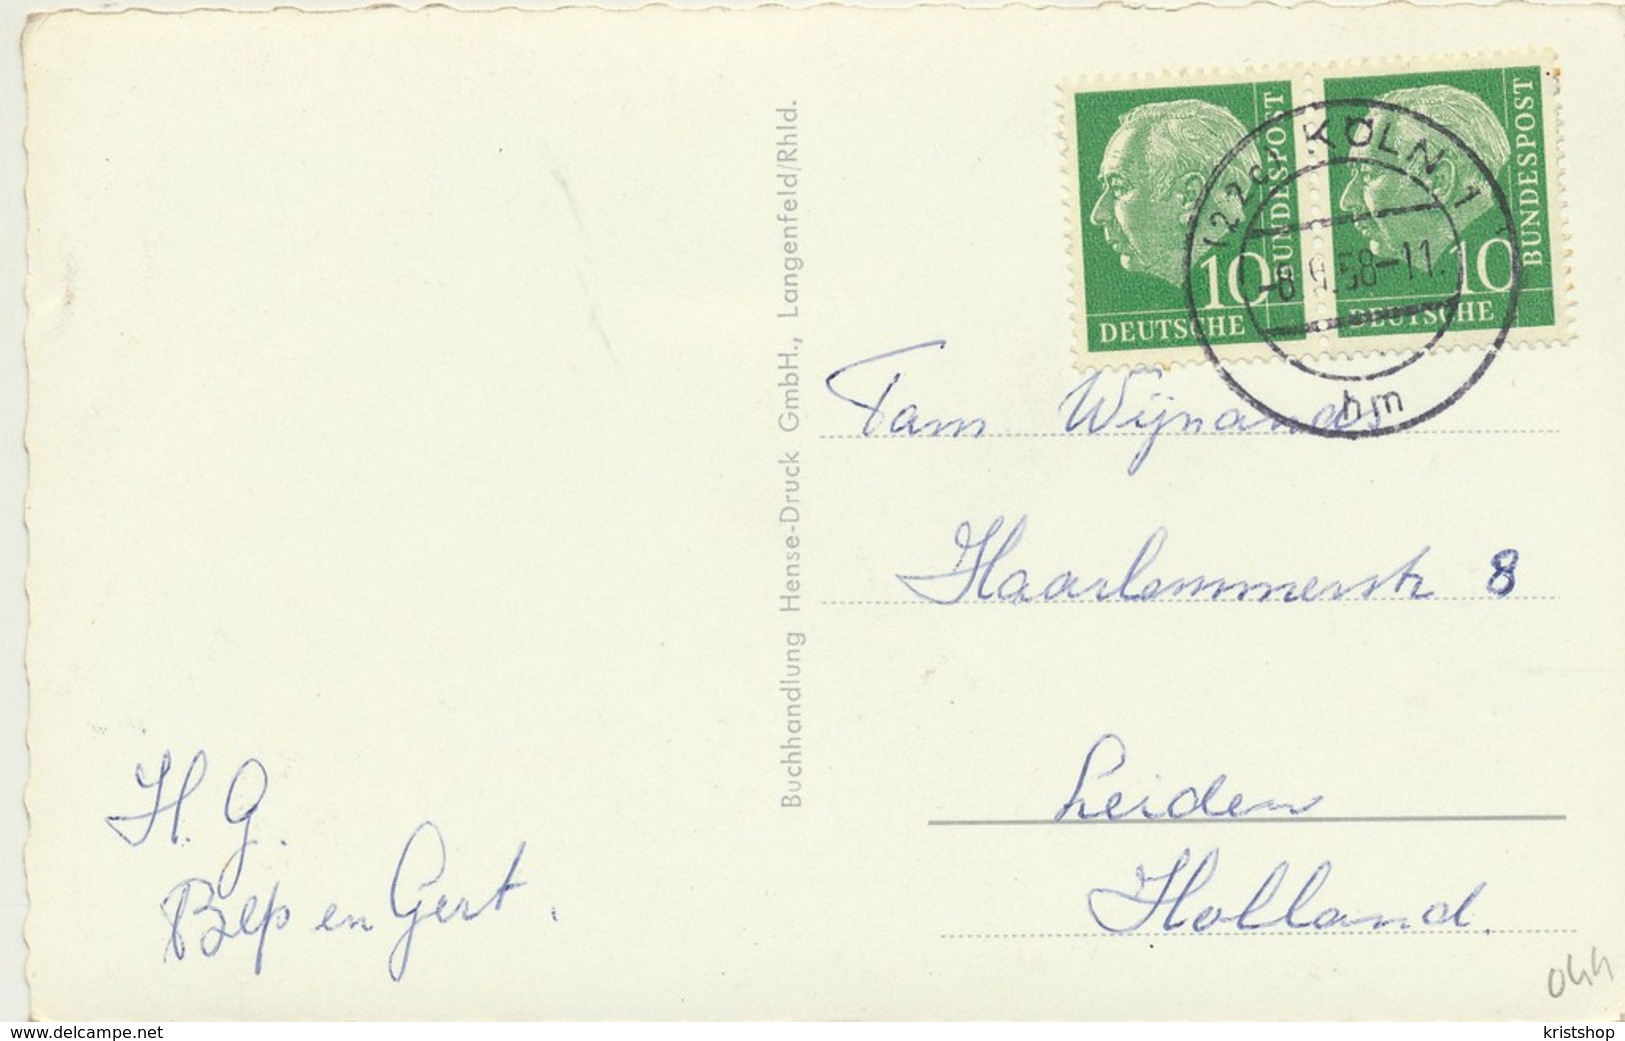 H. G.
Bep en Gert.
Buchhandlung Hense-Druck GmbH., Langenfeld/Rhld.
10
DEUTSCHE
BUNDESPOST
10
DEUTSCHE
BUNDESPOST
KÖLN 1
-8.9.58-11.
hm
Fam Wijnands
Haarlemmerstr 8
Leiden
Holland.
www.delcampe.net
kristshop